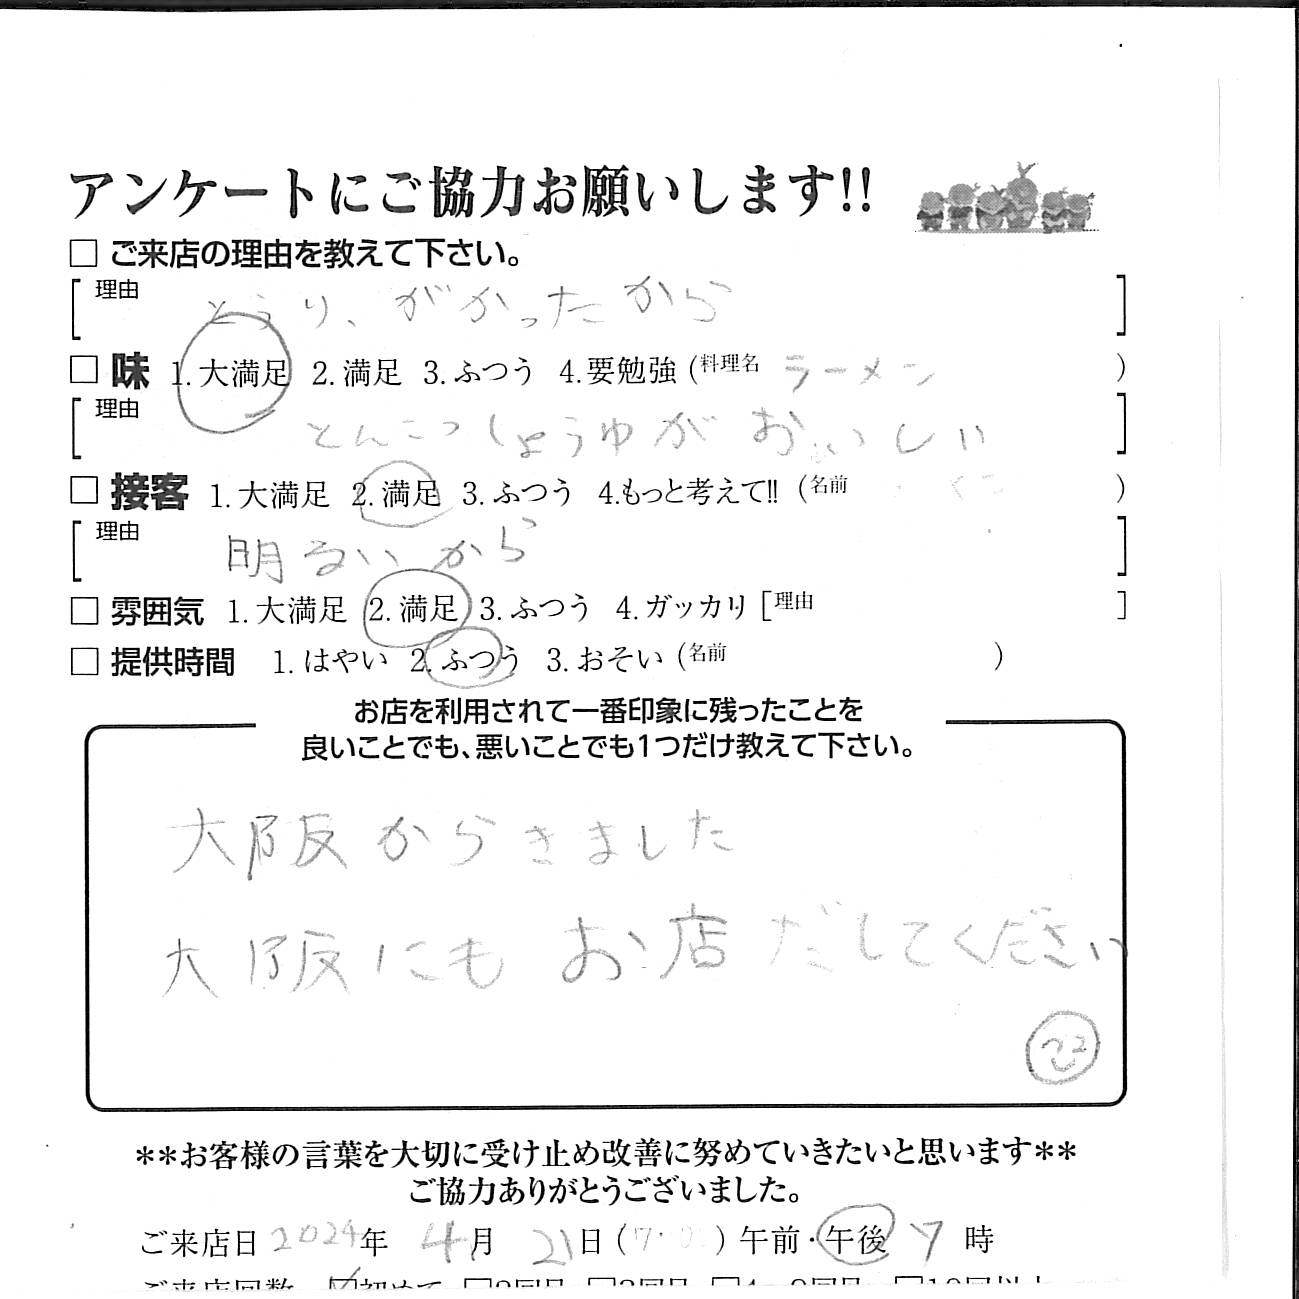 アンケートにご協力お願いします!!
□ ご来店の理由を教えて下さい。
理由 とうり、がかったから
□ 味 1.大満足 2.満足 3.ふつう 4.要勉強 (料理名 ラーメン )
理由 とんこつしょうゆがおいしい
□ 接客 1.大満足 2.満足 3.ふつう 4.もっと考えて!! (名前 )
理由 明るいから
□ 雰囲気 1.大満足 2.満足 3.ふつう 4.ガッカリ [理由 ]
□ 提供時間 1.はやい 2.ふつう 3.おそい (名前 )
お店を利用されて一番印象に残ったことを
良いことでも、悪いことでも1つだけ教えて下さい。
大阪からきました
大阪にもお店だしてください
**お客様の言葉を大切に受け止め改善に努めていきたいと思います**
ご協力ありがとうございました。
ご来店日 2024年 4月 21日 ( ) 午前・午後 7時
ご来店回数 ☑初めて □2回目 □3回目 □4~9回目 □10回以上